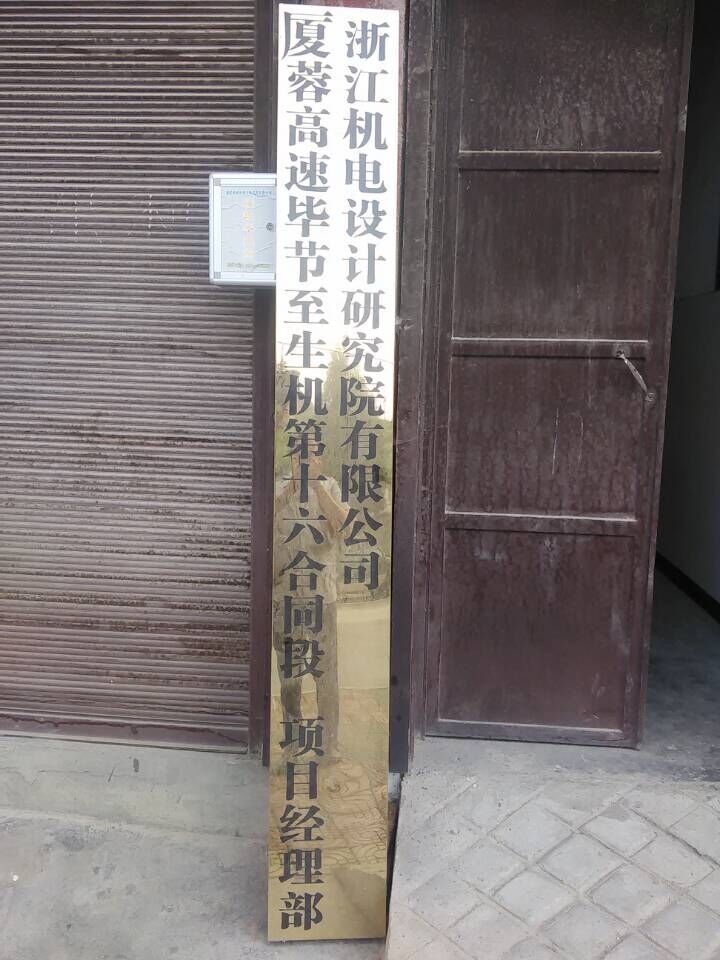 浙江机电设计研究院有限公司
厦蓉高速毕节至生机第十六合同段 项目经理部